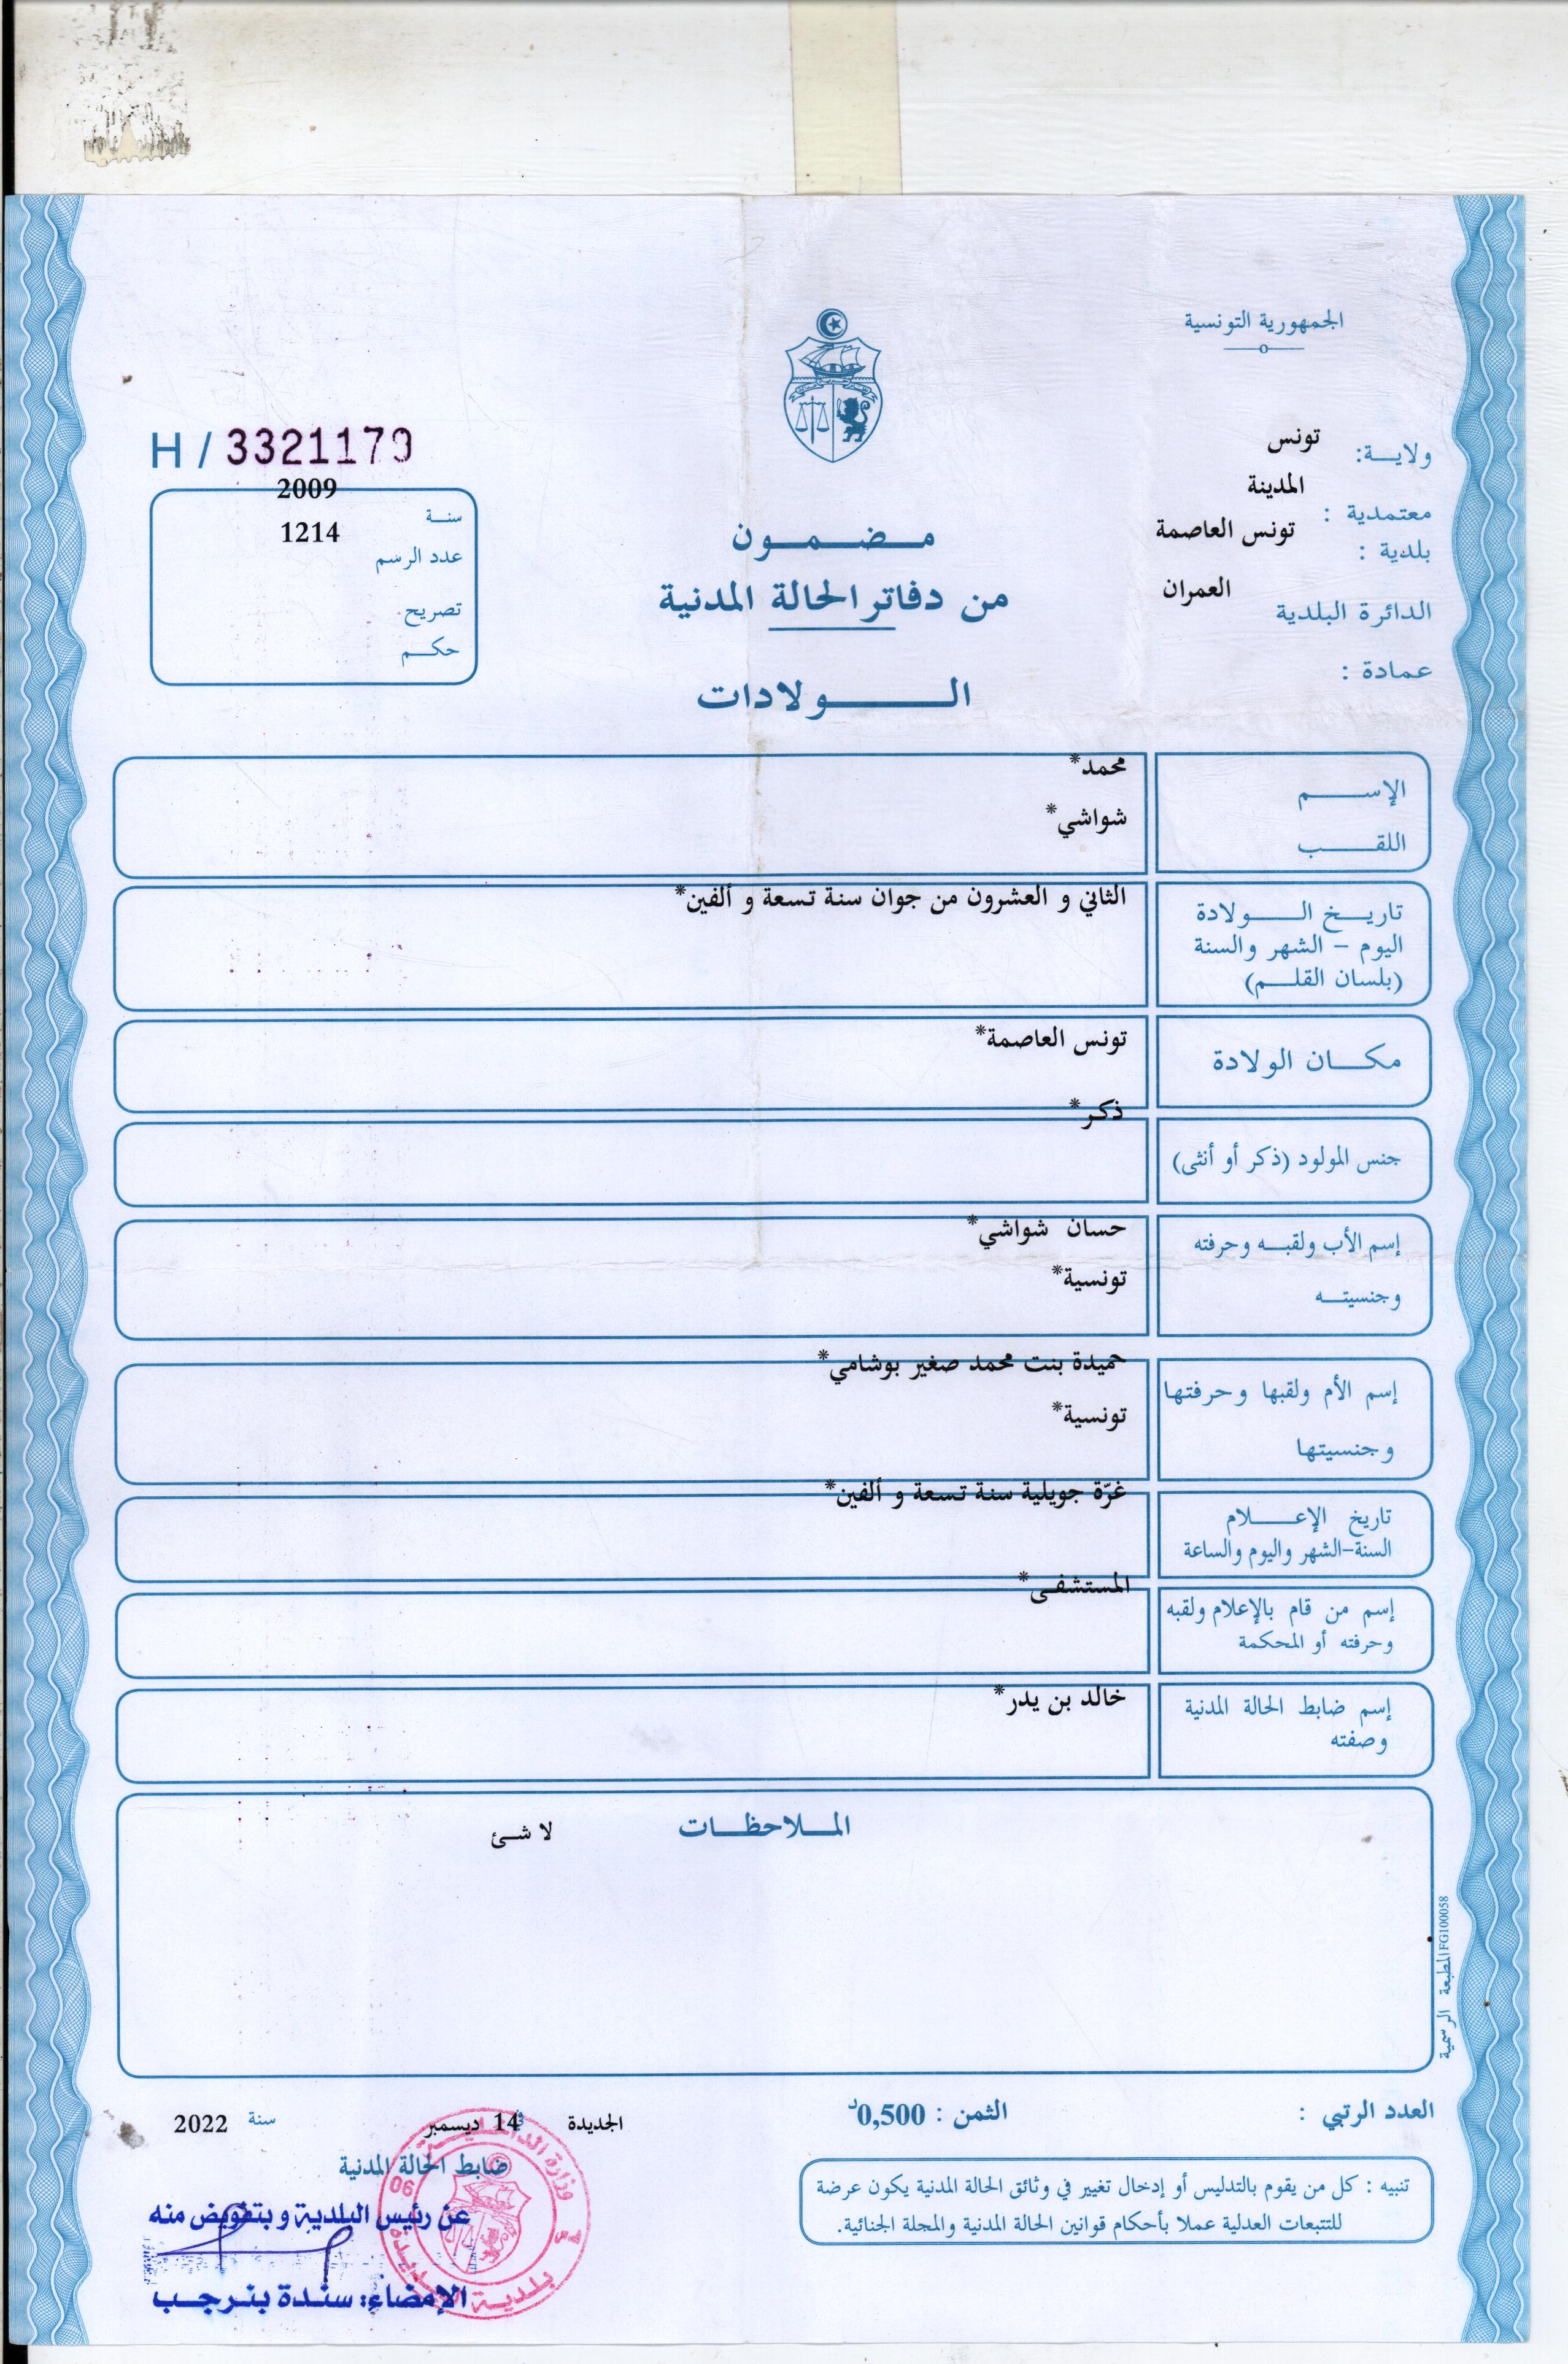 الجمهورية التونسية
ولايـــة: تونس
معتمدية : المدينة
بلدية : تونس العاصمة
الدائرة البلدية العمران
عمادة :
H / 3321179
سنــة 2009
عدد الرسم 1214
تصريح
حكــم
مــضــمــون
من دفاتر الحالة المدنية
الــــولادات
الإســـــم محمد*
اللقـــــب شواشي*
تاريــخ الـــــولادة الثاني و العشرون من جوان سنة تسعة و ألفين*
اليوم - الشهر والسنة
(بلسان القلــم)
مكـــان الولادة تونس العاصمة*
جنس المولود (ذكر أو أنثى) ذكر*
إسم الأب ولقبــه وحرفته حسان شواشي*
وجنسيتــه تونسية*
إسم الأم ولقبها وحرفتها حميدة بنت محمد صغير بوشامي*
وجنسيتها تونسية*
تاريخ الإعـــــلام غرّة جويلية سنة تسعة و ألفين*
السنة-الشهر واليوم والساعة
إسم من قام بالإعلام ولقبه المستشفى*
وحرفته أو المحكمة
إسم ضابط الحالة المدنية خالد بن يدر*
وصفته
المــلاحظــات لا شئ
المطبعة الرسمية FG100058
العدد الرتبي :
الثمن : 0,500د
الجديدة في 14 ديسمبر سنة 2022
ضابط الحالة المدنية
عن رئيس البلدية و بتفويض منه
الإمضاء: سندة بنرجب
وزارة الداخلية
06
بلدية الجديدة
تنبيه : كل من يقوم بالتدليس أو إدخال تغيير في وثائق الحالة المدنية يكون عرضة
للتتبعات العدلية عملا بأحكام قوانين الحالة المدنية والمجلة الجنائية.